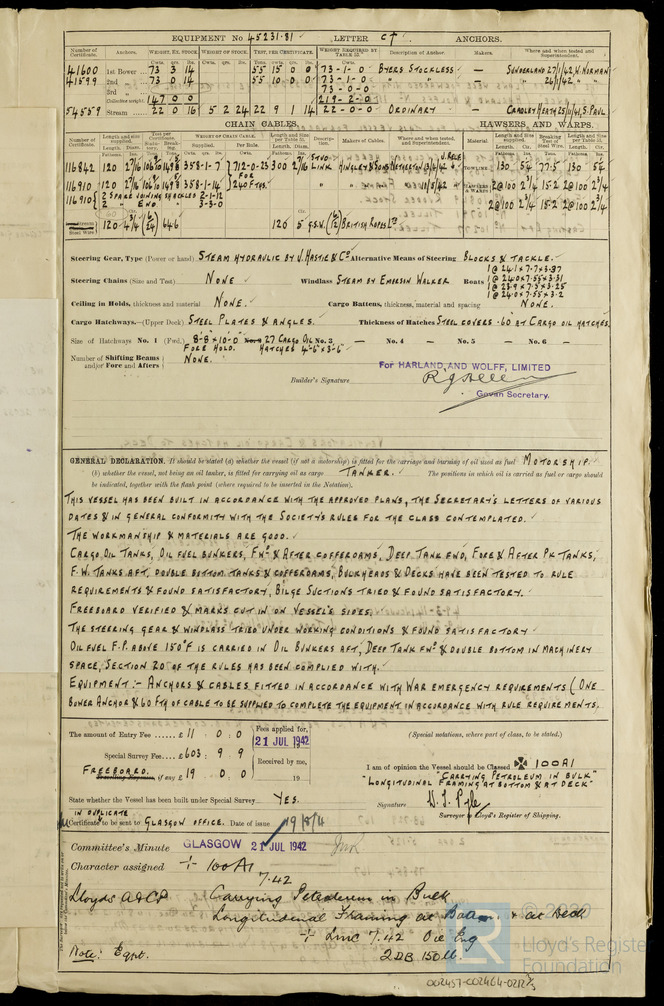 EQUIPMENT No 45231.81 LETTER C† ANCHORS.
Number of Certificate. Anchors. WEIGHT, EX. STOCK WEIGHT OF STOCK. TEST, PER CERTIFICATE. WEIGHT REQUIRED BY TABLE 53. Description of Anchor. Makers. Where and when tested and Superintendent.
41600 1st Bower 73 3 14 55 15 0 0 73-1-0 BYERS STOCKLESS — SUNDERLAND 27/1/42 W. NORMAN
41599 2nd " 73 0 14 55 10 0 0 73-1-0 " " — " 26/1/42 "
3rd " 73-0-0
Collective weight 147 0 0 219-2-0
54559 Stream 22 0 16 5 2 24 22 9 1 14 22-0-0 ORDINARY — CRADLEY HEATH 25/11/41 S. PAUL
CHAIN CABLES. HAWSERS, AND WARPS.
116842 120 2 7/16 358-1-7 712-0-23 300 2 7/16 STUD LINK HINGLEY & SONS NETHERTON TOWLINE 130 5¼ 77.5 130 5¼
116910 120 2 7/16 358-1-14 FOR 240 FTHS. HAWSERS & WARPS 2@100 2¾ 15.2 2@100 2¾
116910 2 SPARE JOINING SHACKLES 2-1-12 2@100 2¾ 15.2 2@100 2¾
2 " END " 3-3-0
Steel Wire 120 4¾ 64.6 120 5 BRITISH ROPES LTD
Steering Gear, Type (Power or hand) STEAM HYDRAULIC BY J. HASTIE & CO Alternative Means of Steering BLOCKS & TACKLE.
Steering Chains (Size and Test) NONE Windlass STEAM BY EMERSON WALKER Boats 1@24.1×7.7×3.37
1@24.0×7.55×3.31
1@23.9×7.5×3.25
1@24.0×7.55×3.2
Ceiling in Holds, thickness and material NONE. Cargo Battens, thickness, material and spacing NONE.
Cargo Hatchways.—(Upper Deck) STEEL PLATES & ANGLES. Thickness of Hatches STEEL COVERS .60 BY CARGO OIL HATCHES.
Size of Hatchways No. 1 (Fwd.) 8-8 × 10-0 27 CARGO OIL No. 3 — No. 4 — No. 5 — No. 6 —
FORE HOLD. HATCHES 4-6 × 3-6
Number of Shifting Beams and/or Fore and Afters NONE.
For HARLAND AND WOLFF, LIMITED
Builder's Signature
Govan Secretary.
GENERAL DECLARATION. It should be stated (a) whether the vessel (if not a motorship) is fitted for the carriage and burning of oil used as fuel MOTORSHIP.
(b) whether the vessel, not being an oil tanker, is fitted for carrying oil as cargo TANKER. The positions in which oil is carried as fuel or cargo should
be indicated, together with the flash point (where required to be inserted in the Notation).
THIS VESSEL HAS BEEN BUILT IN ACCORDANCE WITH THE APPROVED PLANS, THE SECRETARY'S LETTERS OF VARIOUS
DATES & IN GENERAL CONFORMITY WITH THE SOCIETY'S RULES FOR THE CLASS CONTEMPLATED.
THE WORKMANSHIP & MATERIALS ARE GOOD.
CARGO OIL TANKS, OIL FUEL BUNKERS, FWD & AFTER COFFERDAMS, DEEP TANK FWD, FORE & AFTER PK TANKS,
F.W. TANKS AFT, DOUBLE BOTTOM TANKS & COFFERDAMS, BULKHEADS & DECKS HAVE BEEN TESTED TO RULE
REQUIREMENTS & FOUND SATISFACTORY, BILGE SUCTIONS TRIED & FOUND SATISFACTORY.
FREEBOARD VERIFIED & MARKS CUT IN ON VESSEL'S SIDES.
THE STEERING GEAR & WINDLASS TRIED UNDER WORKING CONDITIONS & FOUND SATISFACTORY
OIL FUEL F.P. ABOVE 150°F IS CARRIED IN OIL BUNKERS AFT, DEEP TANK FWD & DOUBLE BOTTOM IN MACHINERY
SPACE, SECTION 20 OF THE RULES HAS BEEN COMPLIED WITH.
EQUIPMENT :- ANCHORS & CABLES FITTED IN ACCORDANCE WITH WAR EMERGENCY REQUIREMENTS (ONE
BOWER ANCHOR & 60 FTHS OF CABLE TO BE SUPPLIED TO COMPLETE THE EQUIPMENT IN ACCORDANCE WITH RULE REQUIREMENTS.
The amount of Entry Fee ...... £ 11 : 0 : 0 Fees applied for, (Special notations, where part of class, to be stated.)
21 JUL 1942
Special Survey Fee.... £ 603 : 9 : 9 Received by me,
FREEBOARD. if any £ 19 : 0 : 0 19
I am of opinion the Vessel should be Classed ✠ 100A1
"CARRYING PETROLEUM IN BULK"
"LONGITUDINAL FRAMING AT BOTTOM & AT DECK"
State whether the Vessel has been built under Special Survey YES.
Signature
Surveyor to Lloyd's Register of Shipping.
IN DUPLICATE
Certificate to be sent to GLASGOW OFFICE. Date of issue
Committee's Minute GLASGOW 21 JUL 1942
Character assigned + 100A1
7.42
Lloyds A&CP Carrying Petroleum in Bulk
Longitudinal Framing at Bottom & at Deck
+ LMC 7.42 Oil Eng
Note: Eqpt. 2DB 150 lb.
© 2020
LR
Lloyd's Register
Foundation
002457-002464-0212